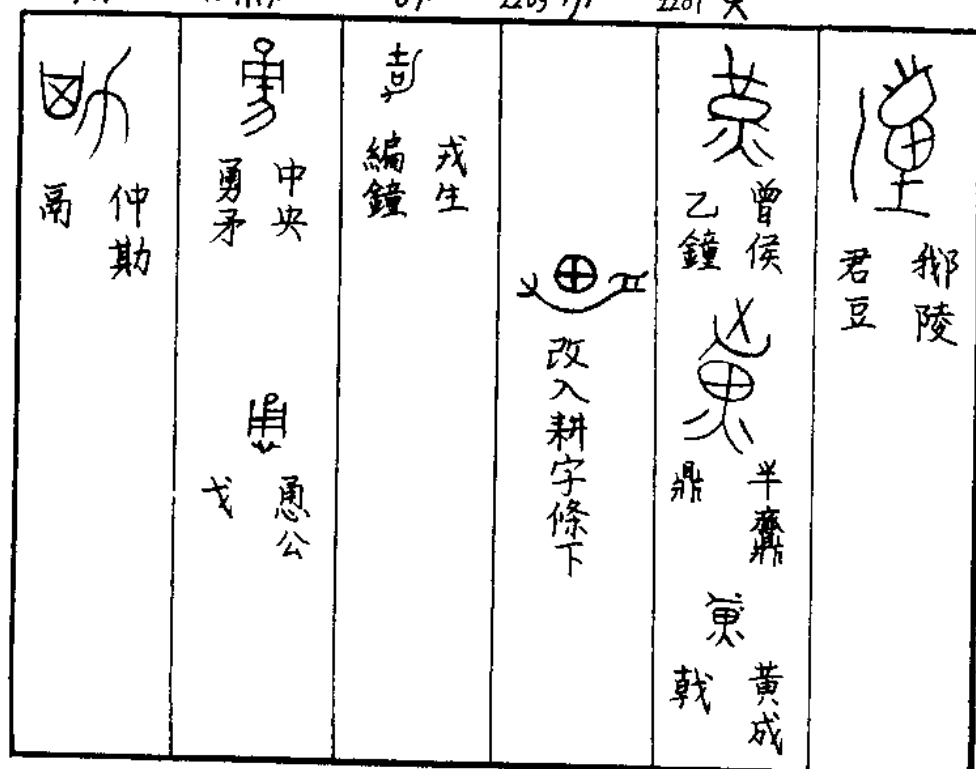 2203
2201
陵
君豆
曾侯
乙鐘
半
鼎
黃成
戟
改入耕字條下
戎生
編鐘
中央
勇矛
恿公
戈
仲
鬲